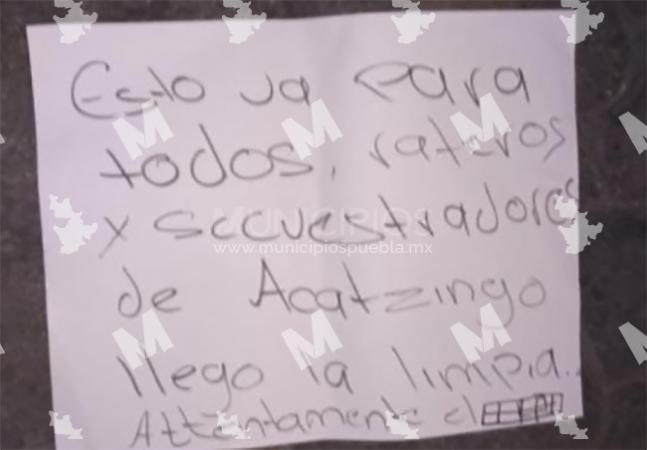 Esto va para
todos, rateros
y secuestradores
de Acatzingo
llego la limpia.
Attentamente el
MUNICIPIOS
www.municipiospuebla.mx